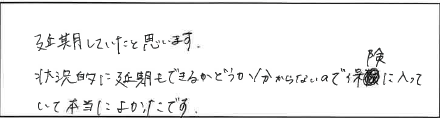 延期していたと思います。
状況的に延期もできるかどうか分からないので保険に入って
いて本当によかったです。